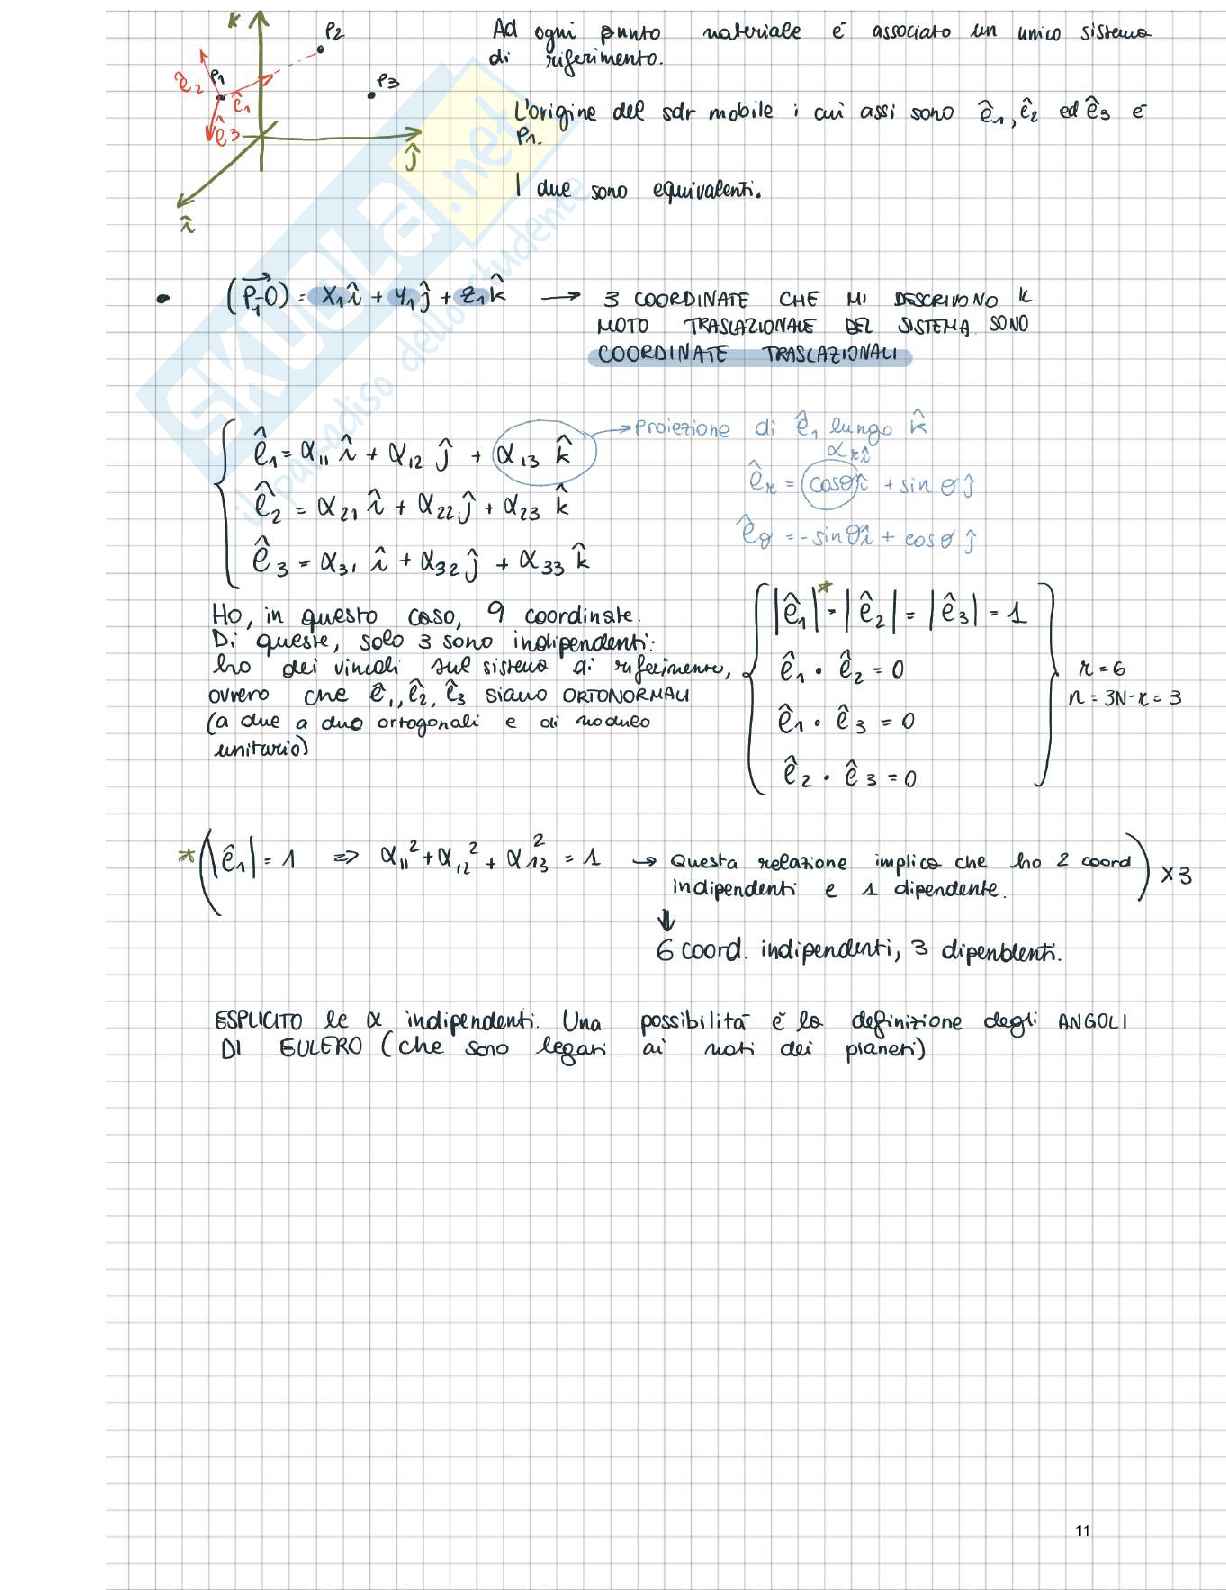 k̂
P2
Ad ogni punto materiale è associato un unico sistema
di riferimento.
ê2 P1
ê1
P3
ê3
ĵ
î
L'origine del sdr mobile i cui assi sono ê1, ê2 ed ê3 è
P1.
I due sono equivalenti.
• (P1-O) = x1 î + y1 ĵ + z1 k̂ → 3 COORDINATE CHE MI DESCRIVONO IL
MOTO TRASLAZIONALE DEL SISTEMA SONO
COORDINATE TRASLAZIONALI
ê1 = α11 î + α12 ĵ + α13 k̂
→ Proiezione di ê1 lungo k̂
ê2 = α21 î + α22 ĵ + α23 k̂
êr = cosθ î + sin θ ĵ
ê3 = α31 î + α32 ĵ + α33 k̂
êθ = -sinθ î + cosθ ĵ
Ho, in questo caso, 9 coordinate.
Di queste, solo 3 sono indipendenti:
ho dei vincoli sul sistema di riferimento,
ovvero che ê1, ê2, ê3 siano ORTONORMALI
(a due a due ortogonali e di modulo
unitario)
|ê1|* = |ê2| = |ê3| = 1
ê1 · ê2 = 0
ê1 · ê3 = 0
ê2 · ê3 = 0
r = 6
n = 3N - r = 3
* (|ê1| = 1 => α11² + α12² + α13² = 1 → Questa relazione implica che ho 2 coord
indipendenti e 1 dipendente.) x3
↓
6 coord. indipendenti, 3 dipendenti.
ESPLICITO le α indipendenti. Una possibilità è la definizione degli ANGOLI
DI EULERO (che sono legati ai moti dei pianeti)
SKUOLA.net
il paradiso dello studente
11